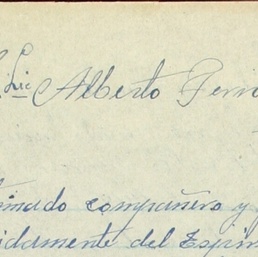 Lic Alberto
timado compañero y
idamente del Espin